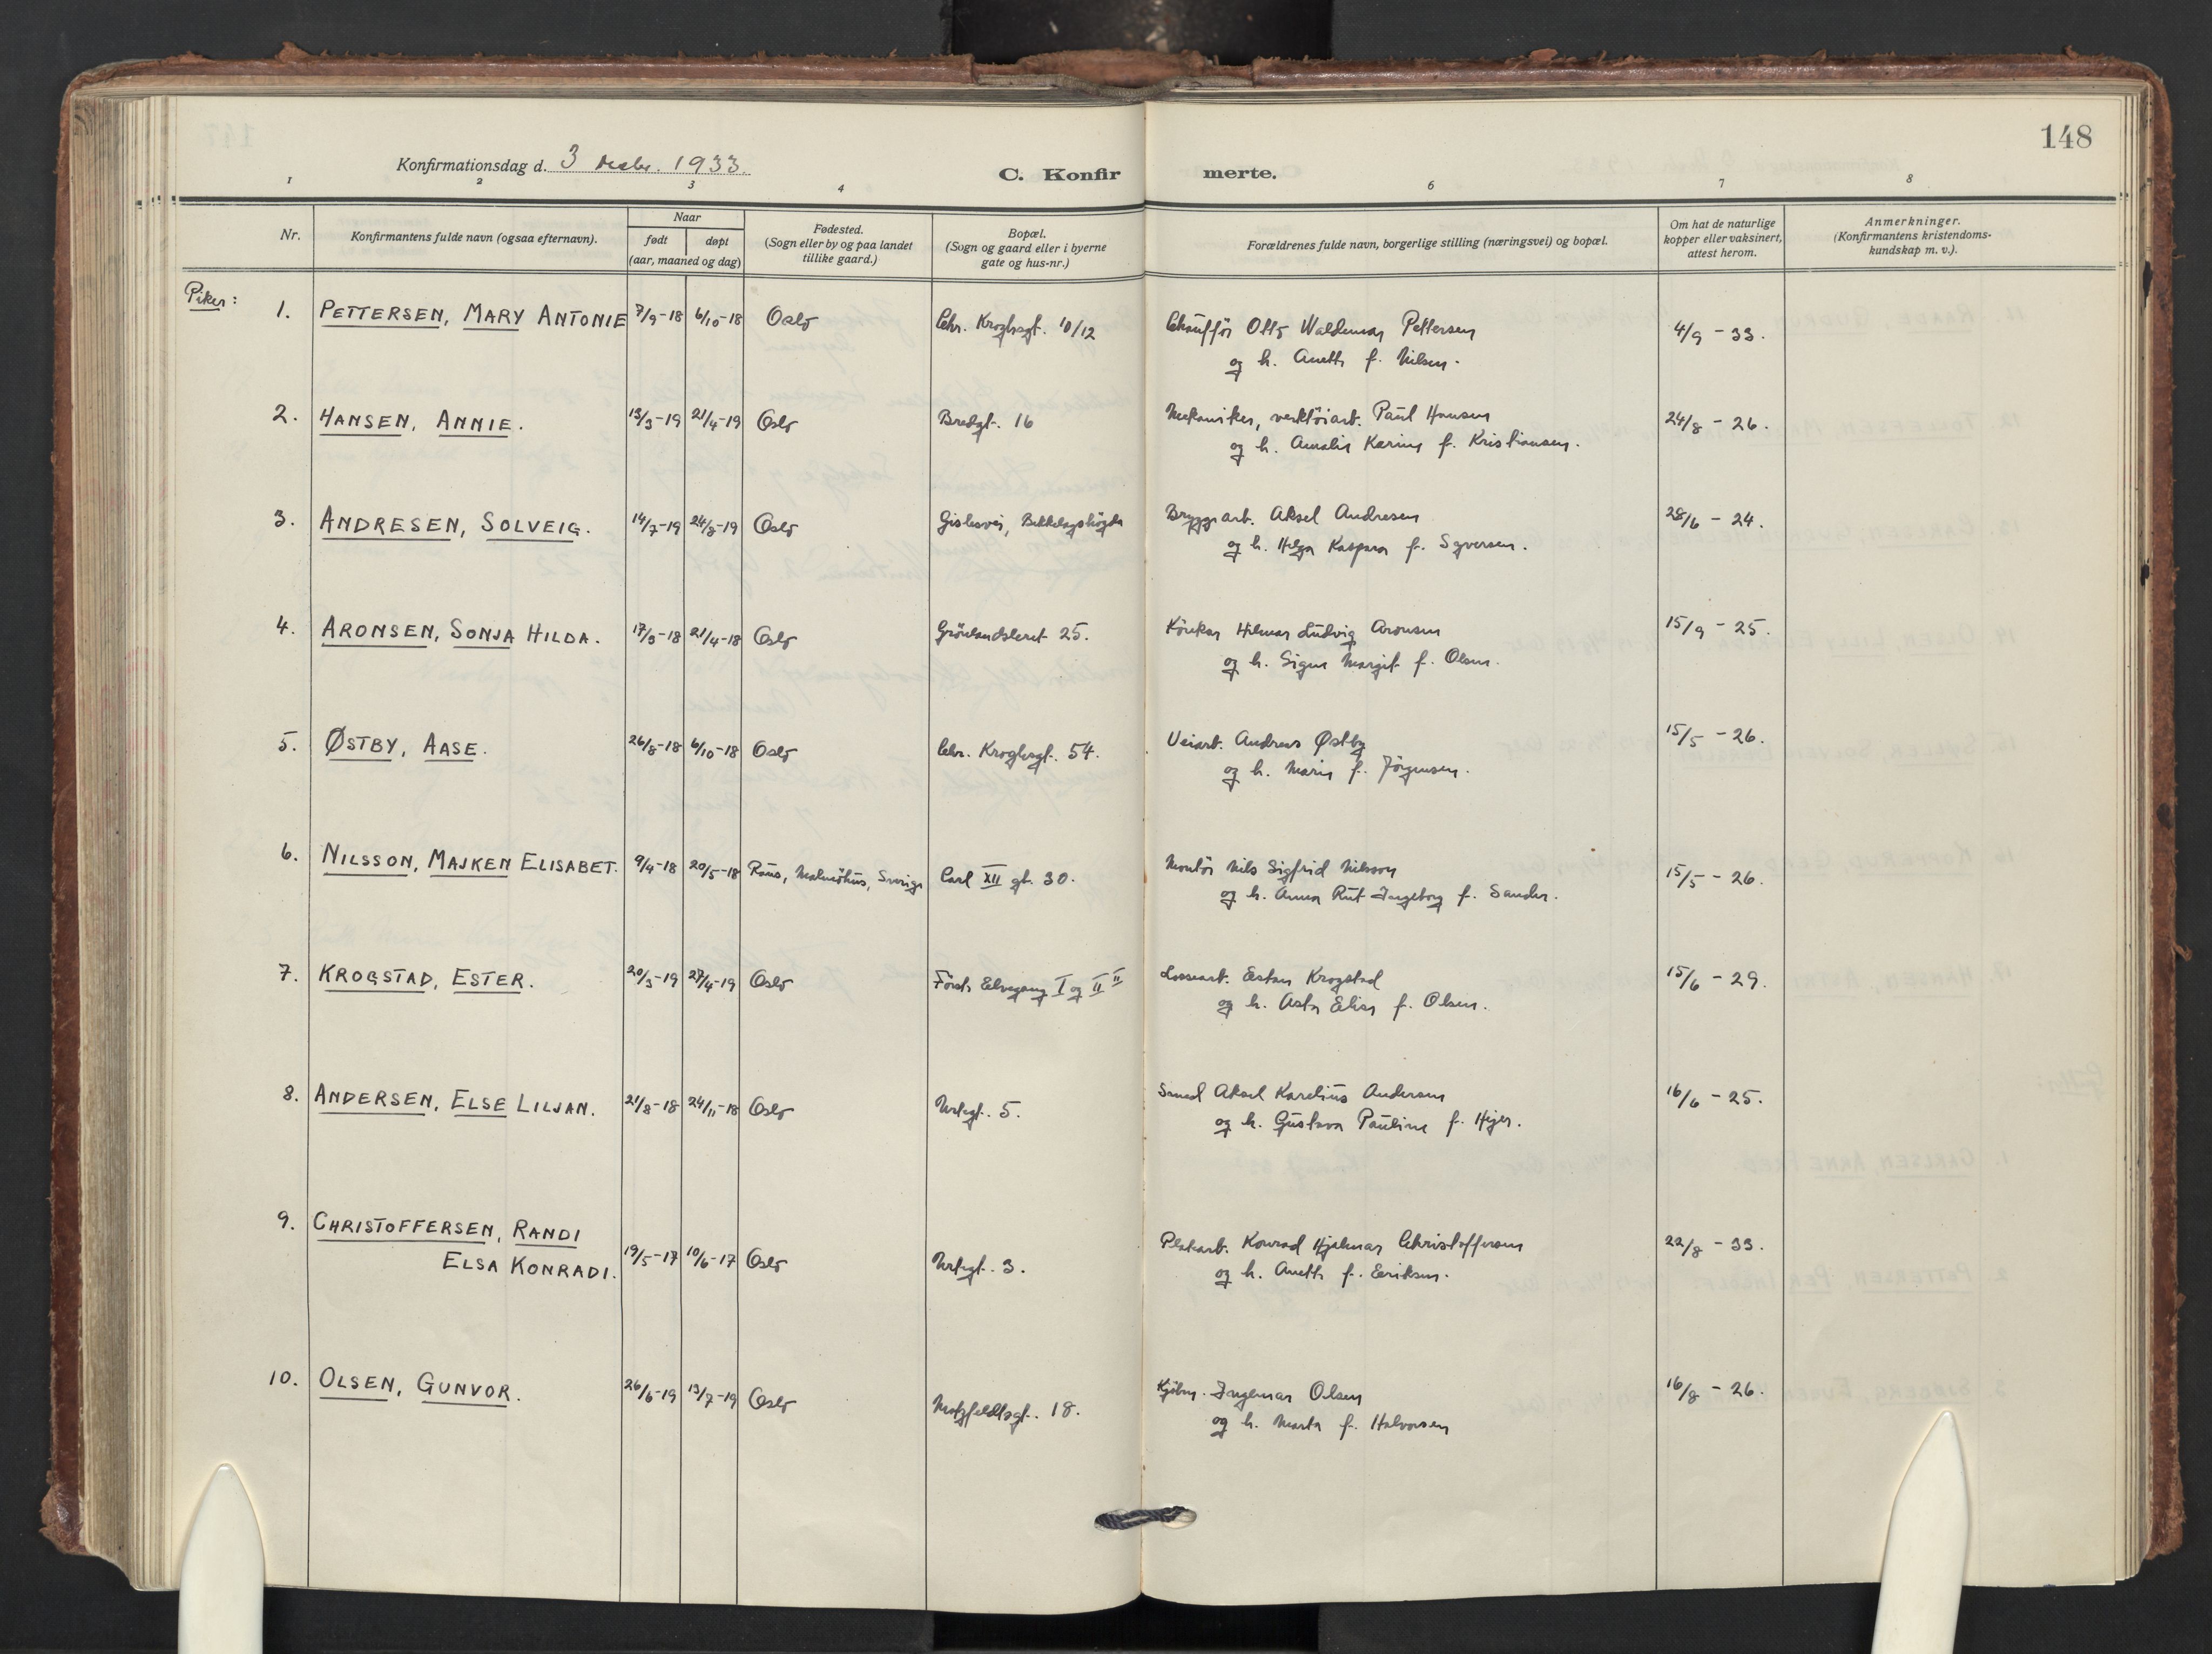 148
Konfirmationsdag d. 3 desbr. 1933.
C. Konfir merte.
1 2 3 4 5 6 7 8
Nr.
Konfirmantens fulde navn (ogsaa efternavn).
Naar
født døpt
(aar, maaned og dag)
Fødested.
(Sogn eller by og paa landet
tillike gaard.)
Bopæl.
(Sogn og gaard eller i byerne
gate og hus-nr.)
Forældrenes fulde navn, borgerlige stilling (næringsvei) og bopæl.
Om hat de naturlige
kopper eller vaksinert,
attest herom.
Anmerkninger.
(Konfirmantens kristendoms-
kundskap m. v.).
Piker:
1. PETTERSEN, MARY ANTONIE 7/9-18 6/10-18 Oslo Chr. Kroghsgt. 10/12 Chauffør Otto Waldemar Pettersen 4/9 - 33.
og h. Aneth f. Nilsen.
2. HANSEN, ANNIE. 13/3-19 21/4-19 Oslo Bredgt. 16 Mekaniker, verktöiarb. Paul Hansen 24/8 - 26.
og h. Amalie Karine f. Kristiansen.
3. ANDRESEN, SOLVEIG. 14/7-19 24/8-19 Oslo Gislesvei, Bekkelagshögda Bryggearb. Aksel Andresen 28/6 - 24.
og h. Helga Kaspara f. Syversen.
4. ARONSEN, SONJA HILDA. 17/3-18 21/4-18 Oslo Grönlandsleret 25. Körekar Hilmar Ludvig Aronsen 15/9 - 25.
og h. Signe Margit f. Olsen.
5. ØSTBY, AASE. 26/8-18 6/10-18 Oslo Chr. Kroghsgt. 54. Veiarb. Andreas Østby 15/5 - 26.
og h. Marie f. Jörgensen.
6. NILSSON, MAJKEN ELISABET. 9/4-18 20/5-18 Raus, Malmöhus, Sverige Carl XII gt. 30. Montör Nils Sigfrid Nilsson 15/5 - 26.
og h. Anna Rut Ingeborg f. Sander.
7. KROGSTAD, ESTER. 20/3-19 27/4-19 Oslo Förste Elvegang I og II II Lossearb. Krogstad 15/6 - 29.
og h. Asta Elise f. Olsen.
8. ANDERSEN, ELSE LILJAN. 21/8-18 24/11-18 Oslo Urtegt. 5. Smed Aksel Karelius Andersen 16/6 - 25.
og h. Gustava Pauline f. Hejer.
9. CHRISTOFFERSEN, RANDI
ELSA KONRADI. 19/5-17 10/6-17 Oslo Urtegt. 3. Platearb. Konrad Hjalmar Christoffersen 22/8 - 33.
og h. Aneth f. Eriksen.
10. OLSEN, GUNVOR. 26/6-19 13/7-19 Oslo Motzfeldtsgt. 18. Kjöbm. Ingemar Olsen 16/8 - 26.
og h. Marta f. Halvorsen